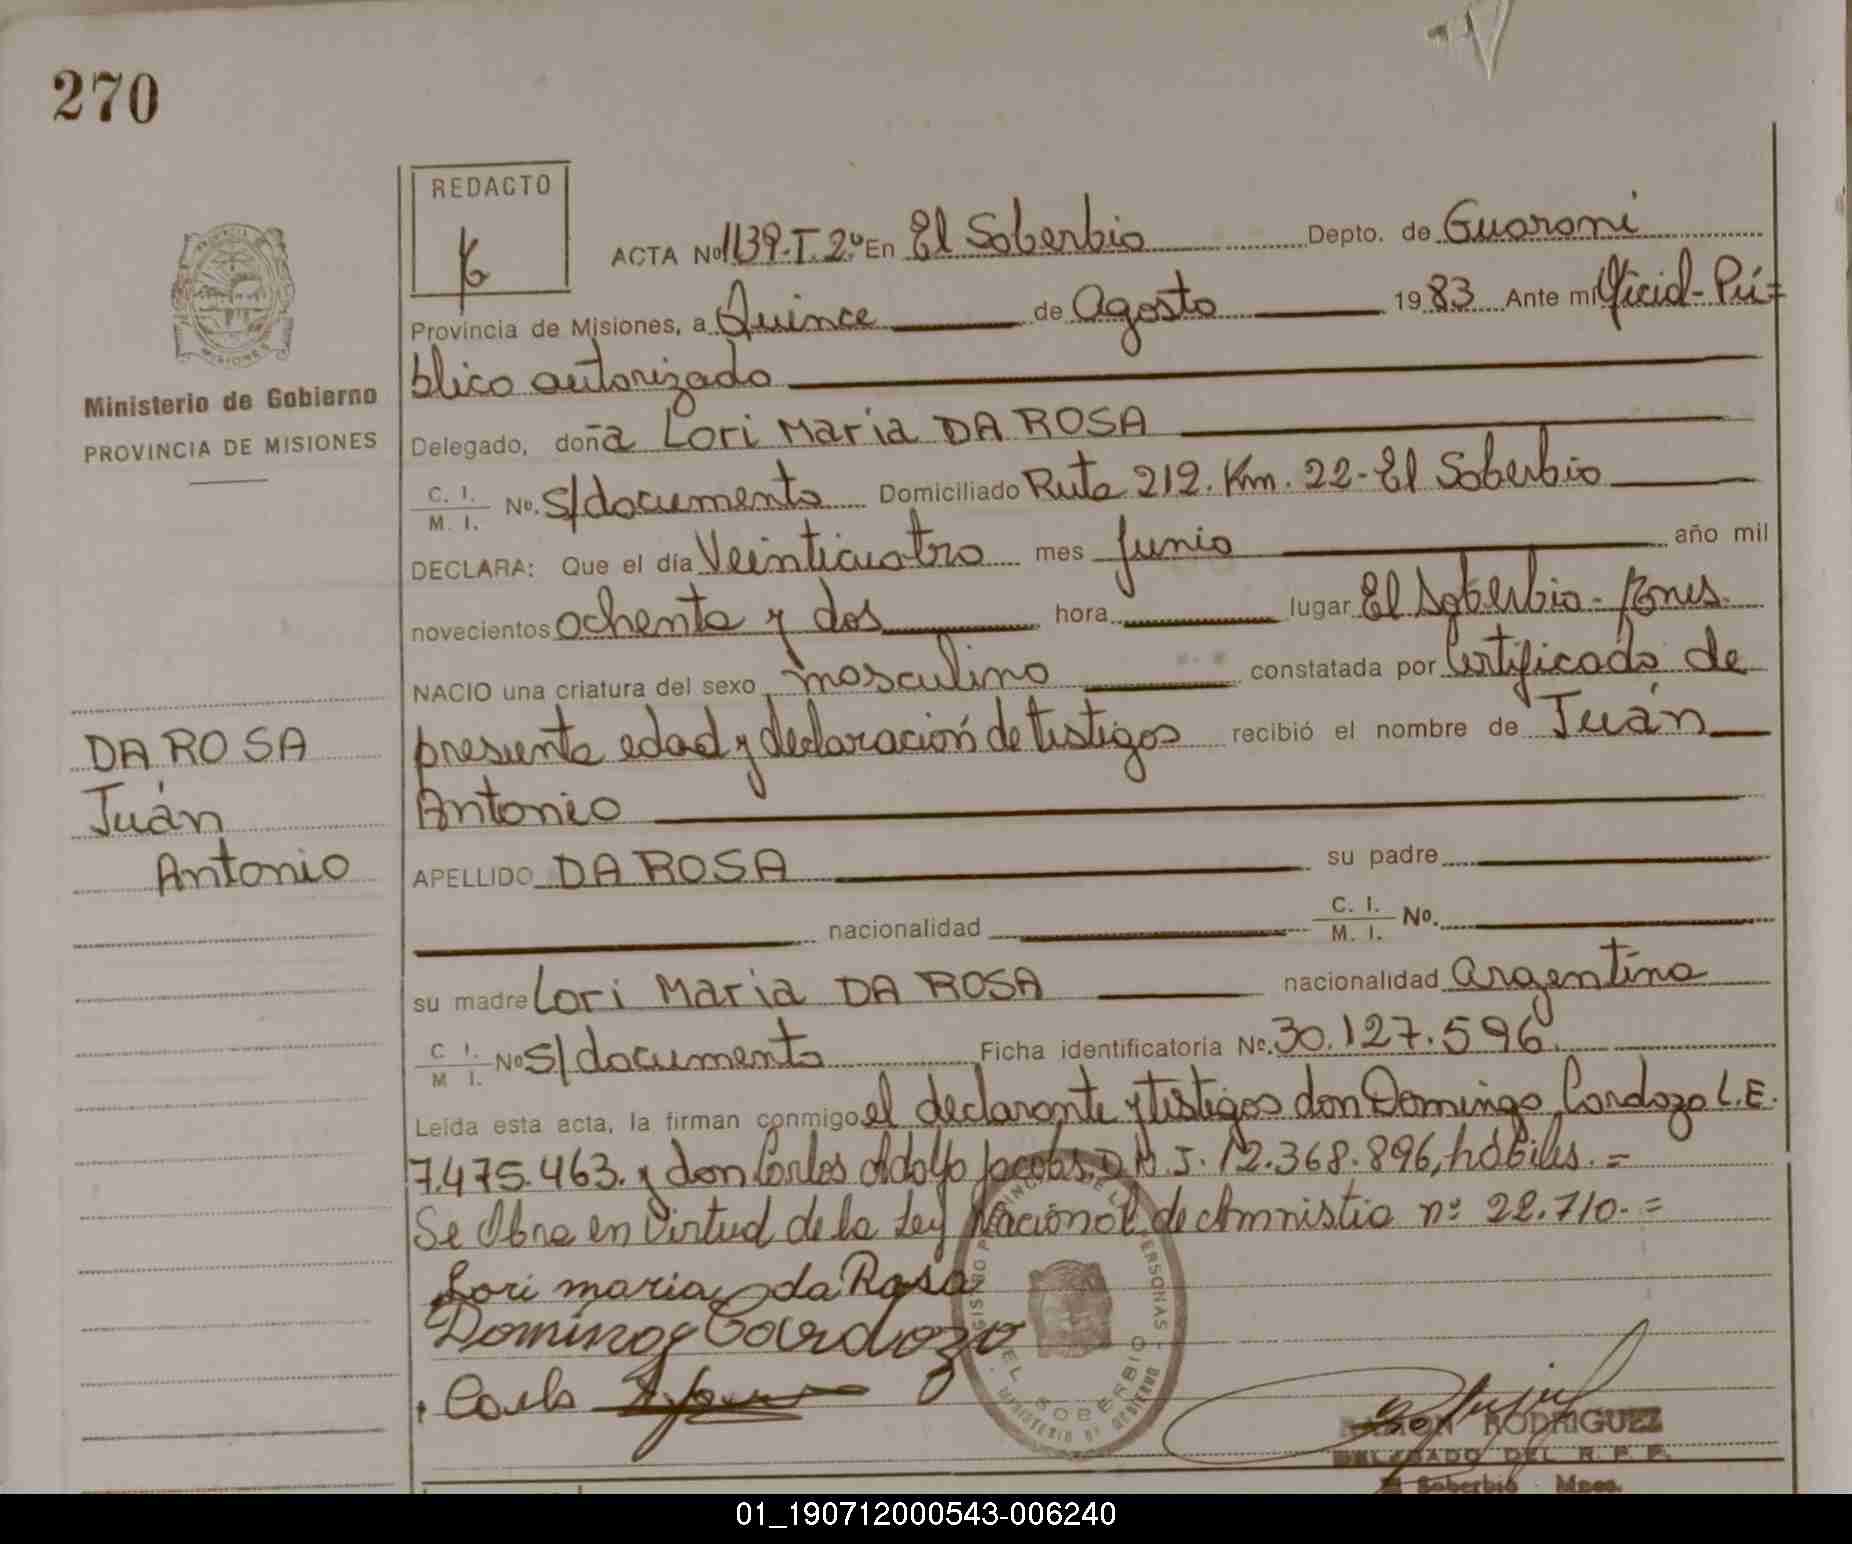 270
REDACTO
ACTA Nº 1139.T.2º En El Soberbio Depto. de Guarani
Provincia de Misiones, a Quince de Agosto 1983 Ante mi Oficial-Pú-
blico autorizado
Ministerio de Gobierno
PROVINCIA DE MISIONES
Delegado, doña Lori Maria DA ROSA
C. I.
M. I. No. S/documento Domiciliado Ruta 212. Km. 22-El Soberbio
DECLARA: Que el día Veinticuatro mes Junio año mil
novecientos ochenta y dos hora lugar El Soberbio-
NACIO una criatura del sexo masculino constatada por Certificado de
presunta edad y declaración de testigos recibió el nombre de Juán
Antonio
DA ROSA
Juán
Antonio
APELLIDO DA ROSA su padre
nacionalidad C. I.
M. I. No.
su madre Lori Maria DA ROSA nacionalidad argentina
C I.
M I. No S/documento Ficha identificatoria No. 30.127.596
Leída esta acta, la firman conmigo el declarante y testigos don Domingo Cardozo L.E.
7.475.463. y don Carlos Adolfo Jacobs, D.N.I. 12.368.896, hábiles. =
Se Obra en Virtud de la Ley Nacional de Amnistia nº 22.710. =
Lori maria da Rosa
Domingo Cardozo
Carlo
REGISTRO PROVINCIAL DE LAS PERSONAS
EL SOBERBIO
MINISTERIO DE GOBIERNO
RAMON RODRIGUEZ
DELEGADO DEL R. P. P.
El Soberbio - Mnes.
01_190712000543-006240